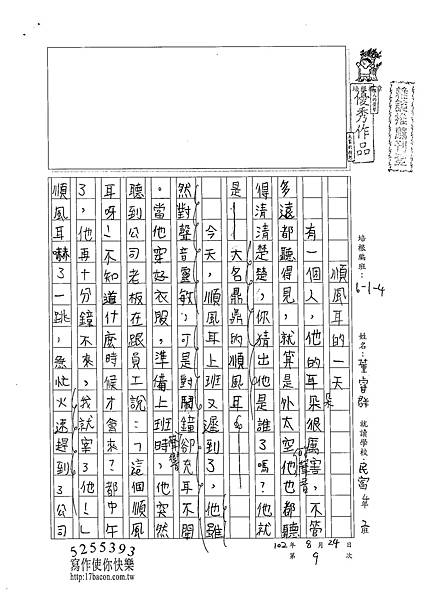 優秀作品
培根編班:6-1-4
姓名:
就讀學校:民富
102年8月24日
第9次
順風耳的一天
有一個人,他的耳朵很厲害,不管
多遠都聽得見,就算是外太空的聲音他也都聽
得清清楚楚,你猜出他是誰了嗎?他就
是——大名鼎鼎的順風耳。
今天,順風耳上班又遲到了,他雖
然對聲音靈敏,可是對鬧鐘聲卻充耳不聞
。當他穿好衣服,準備上班時,他突然
聽到公司老板在跟員工說:「這個順風
耳呀!不知道什麼時候才會來?都中午
了,他再十分鐘不來,我就宰了他!」
順風耳嚇了一跳,急忙火速趕到了公司
5255393
寫作使你快樂
http://17bacon.com.tw